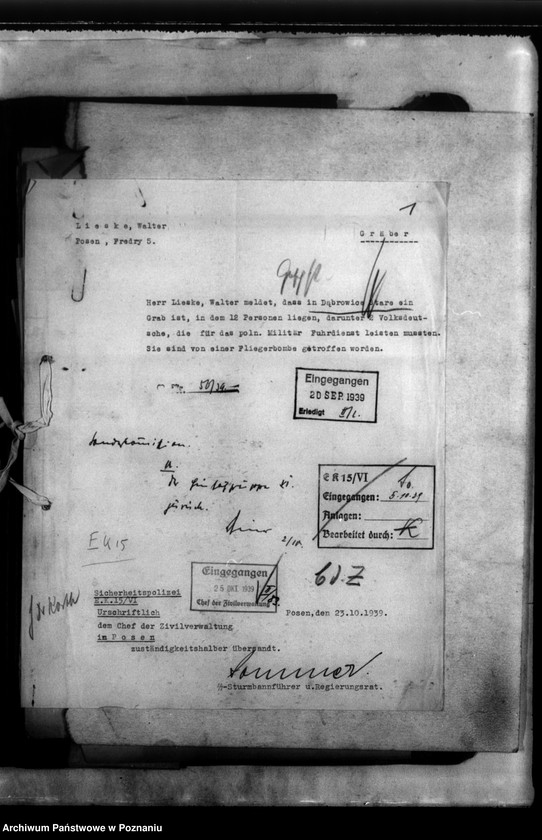 1
L i e s k e, Walter
Posen , Fredry 5.
G r ä b e r
Herr Lieske, Walter meldet, dass in Dąbrowice stare ein
Grab ist, in dem 12 Personen liegen, darunter 2 Volksdeut-
sche, die für das poln. Militär Fuhrdienst leisten mussten.
Sie sind von einer Fliegerbombe getroffen worden.
Eingegangen
20 SEP. 1939
Erledigt
E K 15/VI
Eingegangen:
Anlagen:
Bearbeitet durch:
zurück.
2/10.
E K 15
Eingegangen
25 OKT 1939
Chef der Zivilverwaltung
CdZ
Sicherheitspolizei
E.K.15/VI
Urschriftlich
Posen,den 23.10.1939.
dem Chef der Zivilverwaltung
in P o s e n
zuständigkeitshalber übersandt.
Sommer
SS-Sturmbannführer u.Regierungsrat.
Archiwum Państwowe w Poznaniu